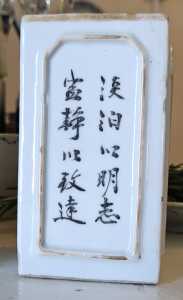 淡泊以明志
寧靜以致遠